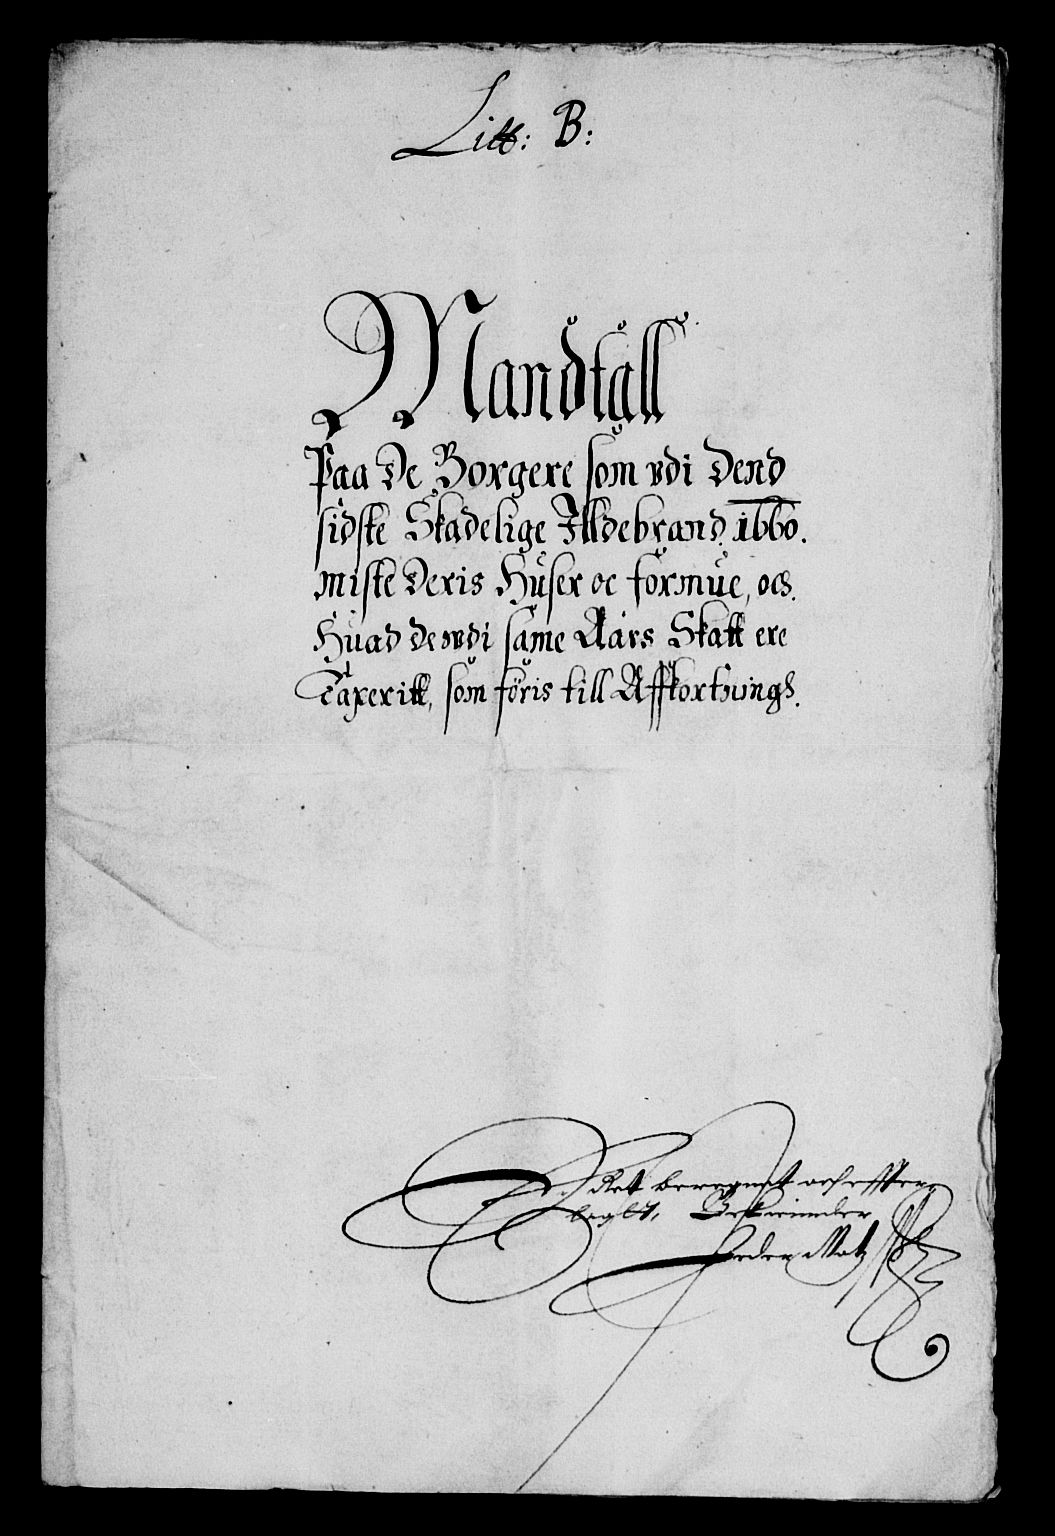 Litt: B:
Mandtall
Paa De Borgere som udi Dend
sidste Skadelige Illdebrand 1660.
miste Deris Huser oc formue, och
Huad de udi same Aars Skatt ere
Taxeritt, som föris till Affkortnings.
Ret beregnet och effter
Peder